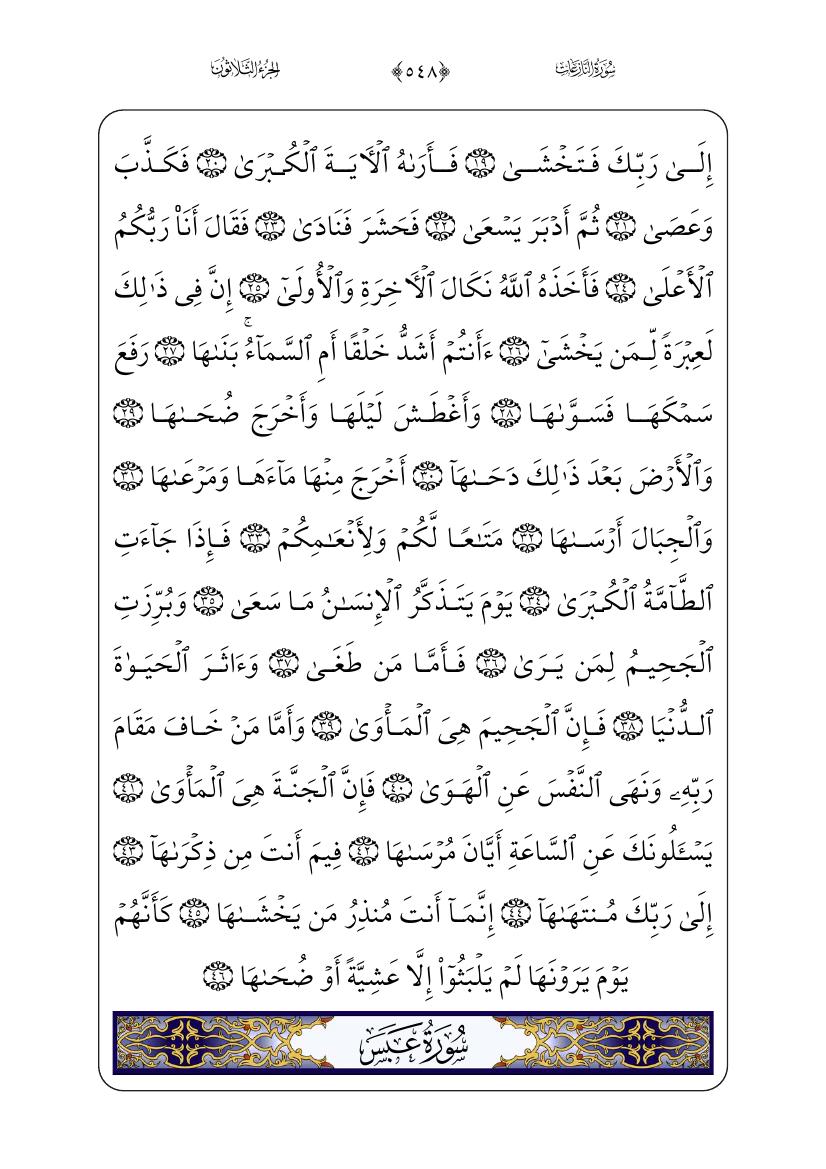 سُورَةُ النَّازِعَاتِ ﴿٥٤٨﴾ الجُزْءُ الثَّلَاثُونَ
إِلَىٰ رَبِّكَ فَتَخۡشَىٰ ١٩ فَأَرَىٰهُ ٱلۡأٓيَةَ ٱلۡكُبۡرَىٰ ٢٠ فَكَذَّبَ
وَعَصَىٰ ٢١ ثُمَّ أَدۡبَرَ يَسۡعَىٰ ٢٢ فَحَشَرَ فَنَادَىٰ ٢٣ فَقَالَ أَنَا۠ رَبُّكُمُ
ٱلۡأَعۡلَىٰ ٢٤ فَأَخَذَهُ ٱللَّهُ نَكَالَ ٱلۡأٓخِرَةِ وَٱلۡأُولَىٰٓ ٢٥ إِنَّ فِي ذَٰلِكَ
لَعِبۡرَةٗ لِّمَن يَخۡشَىٰٓ ٢٦ ءَأَنتُمۡ أَشَدُّ خَلۡقًا أَمِ ٱلسَّمَآءُۚ بَنَىٰهَا ٢٧ رَفَعَ
سَمۡكَهَا فَسَوَّىٰهَا ٢٨ وَأَغۡطَشَ لَيۡلَهَا وَأَخۡرَجَ ضُحَىٰهَا ٢٩
وَٱلۡأَرۡضَ بَعۡدَ ذَٰلِكَ دَحَىٰهَآ ٣٠ أَخۡرَجَ مِنۡهَا مَآءَهَا وَمَرۡعَىٰهَا ٣١
وَٱلۡجِبَالَ أَرۡسَىٰهَا ٣٢ مَتَٰعٗا لَّكُمۡ وَلِأَنۡعَٰمِكُمۡ ٣٣ فَإِذَا جَآءَتِ
ٱلطَّآمَّةُ ٱلۡكُبۡرَىٰ ٣٤ يَوۡمَ يَتَذَكَّرُ ٱلۡإِنسَٰنُ مَا سَعَىٰ ٣٥ وَبُرِّزَتِ
ٱلۡجَحِيمُ لِمَن يَرَىٰ ٣٦ فَأَمَّا مَن طَغَىٰ ٣٧ وَءَاثَرَ ٱلۡحَيَوٰةَ
ٱلدُّنۡيَا ٣٨ فَإِنَّ ٱلۡجَحِيمَ هِيَ ٱلۡمَأۡوَىٰ ٣٩ وَأَمَّا مَنۡ خَافَ مَقَامَ
رَبِّهِۦ وَنَهَى ٱلنَّفۡسَ عَنِ ٱلۡهَوَىٰ ٤٠ فَإِنَّ ٱلۡجَنَّةَ هِيَ ٱلۡمَأۡوَىٰ ٤١
يَسۡـَٔلُونَكَ عَنِ ٱلسَّاعَةِ أَيَّانَ مُرۡسَىٰهَا ٤٢ فِيمَ أَنتَ مِن ذِكۡرَىٰهَآ ٤٣
إِلَىٰ رَبِّكَ مُنتَهَىٰهَآ ٤٤ إِنَّمَآ أَنتَ مُنذِرُ مَن يَخۡشَىٰهَا ٤٥ كَأَنَّهُمۡ
يَوۡمَ يَرَوۡنَهَا لَمۡ يَلۡبَثُوٓاْ إِلَّا عَشِيَّةً أَوۡ ضُحَىٰهَا ٤٦
سُورَةُ عَبَسَ